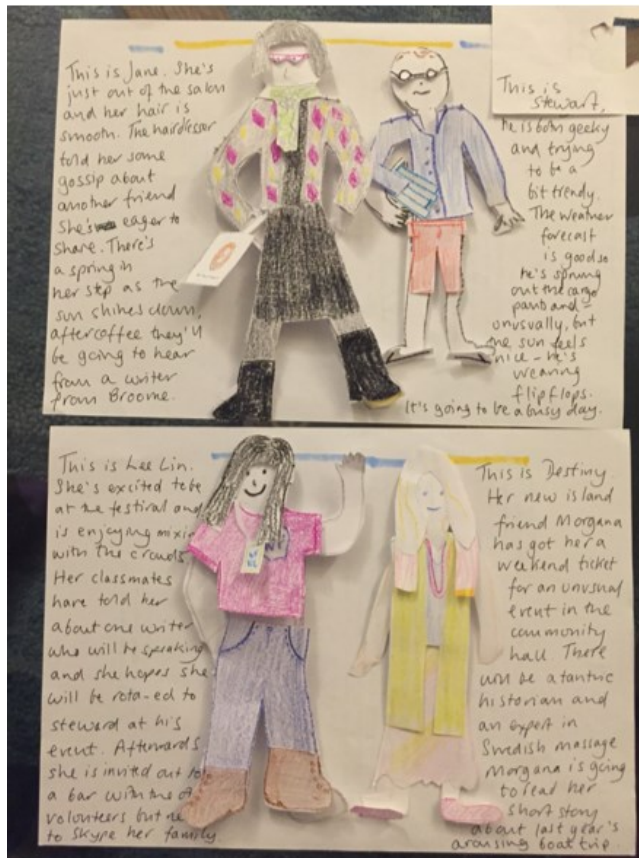 This is Jane. She's
just out of the salon
and her hair is
smooth. The hairdresser
told her some
gossip about
another friend
she's eager to
share. There's
a spring in
her step as the
sun shines down,
after coffee they'll
be going to hear
from a writer
from Broome.
This is
Stewart,
he is both geeky
and trying
to be a
bit trendy.
The weather
forecast
is good so
he's sprung
out the cargo
pants and -
unusually, but
the sun feels
nice - he's
wearing
flipflops.
It's going to be a busy day.
This is Lee Lin.
She's excited to be
at the festival and
is enjoying mixin
with the crowds.
Her classmates
have told her
about one writer
who will be speaking
and she hopes she
will be rota-ed to
steward at his
event. Afterwards
she is invited out to
a bar with the
volunteers but
to Skype her family.
This is Destiny
Her new island
friend Morgana
has got her a
weekend ticket
for an unusual
event in the
community
hall. There
will be a tantric
historian and
an expert in
Swedish massage
Morgana is going
to read her
short story
about last year's
arousing boat trip.